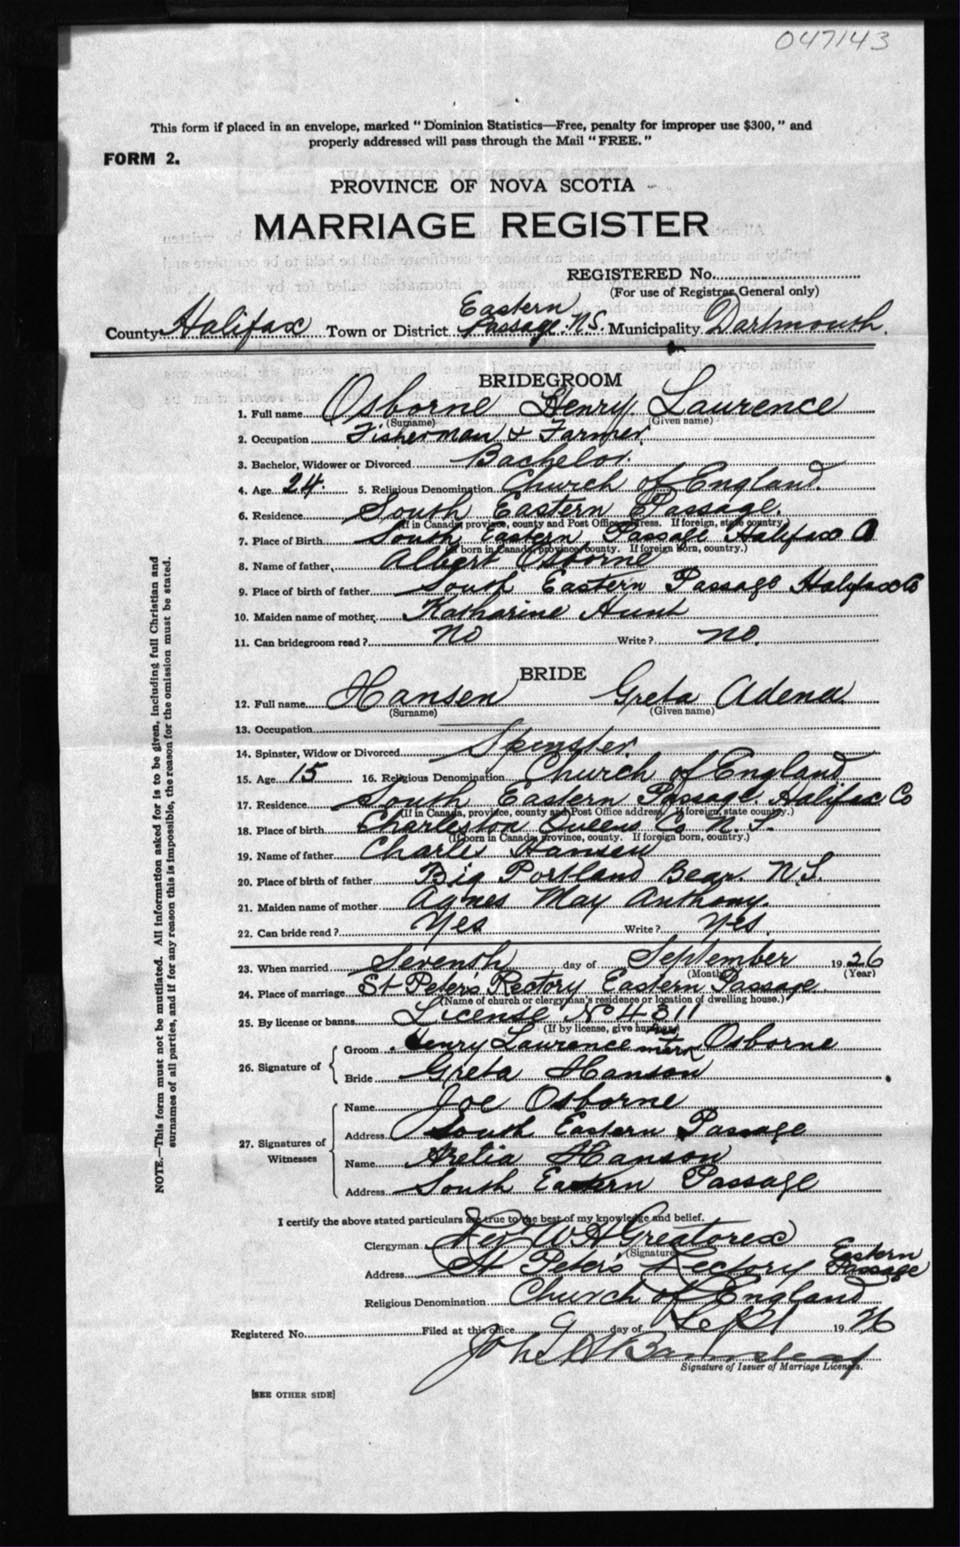 047143
This form if placed in an envelope, marked "Dominion Statistics—Free, penalty for improper use $300," and
properly addressed will pass through the Mail "FREE."
FORM 2.
PROVINCE OF NOVA SCOTIA
MARRIAGE REGISTER
REGISTERED No.
(For use of Registrar General only)
County Halifax Town or District Eastern Passage. N.S. Municipality Dartmouth.
BRIDEGROOM
1. Full name Osborne Henry Laurence
(Surname) (Given name)
2. Occupation Fisherman & Farmer
3. Bachelor, Widower or Divorced Bachelor.
4. Age 24. 5. Religious Denomination Church of England.
6. Residence South Eastern Passage.
(If in Canada, province, county and Post Office address. If foreign, state country.)
7. Place of Birth South Eastern Passage Halifax Co
(If born in Canada, province, county. If foreign born, country.)
8. Name of father Albert Osborne
9. Place of birth of father South Eastern Passage Halifax Co
10. Maiden name of mother Katharine Hunt
11. Can bridegroom read? No Write? no.
BRIDE
12. Full name Hansen Greta Adena
(Surname) (Given name)
13. Occupation
14. Spinster, Widow or Divorced Spinster.
15. Age 15 16. Religious Denomination Church of England
17. Residence South Eastern Passage Halifax Co
(If in Canada, province, county and Post Office address. If foreign, state country.)
18. Place of birth Charleston Queens Co N.S.
(If born in Canada, province, county. If foreign born, country.)
19. Name of father Charles Hansen
20. Place of birth of father Big Portland Bear. N.S.
21. Maiden name of mother Agnes May Anthony.
22. Can bride read? Yes Write? Yes.
23. When married Seventh day of September 1926
(Month) (Year)
24. Place of marriage St Peter's Rectory Eastern Passage
(Name of church or clergyman's residence or location of dwelling house.)
25. By license or banns License No 4311
(If by license, give number)
26. Signature of Groom Henry Laurence his mark Osborne
Bride Greta Hanson
27. Signatures of Witnesses Name Joe Osborne
Address South Eastern Passage
Name Arelia Hanson
Address South Eastern Passage
I certify the above stated particulars are true to the best of my knowledge and belief.
Clergyman Rev W H Greatorex
(Signature)
Address St Peter's Rectory Eastern Passage
Religious Denomination Church of England
Registered No. Filed at this office 9 day of Sept 1926
Signature of Issuer of Marriage Licenses.
[SEE OTHER SIDE]
NOTE.—This form must not be mutilated. All information asked for is to be given, including full Christian and
surnames of all parties, and if for any reason this is impossible, the reason for the omission must be stated.